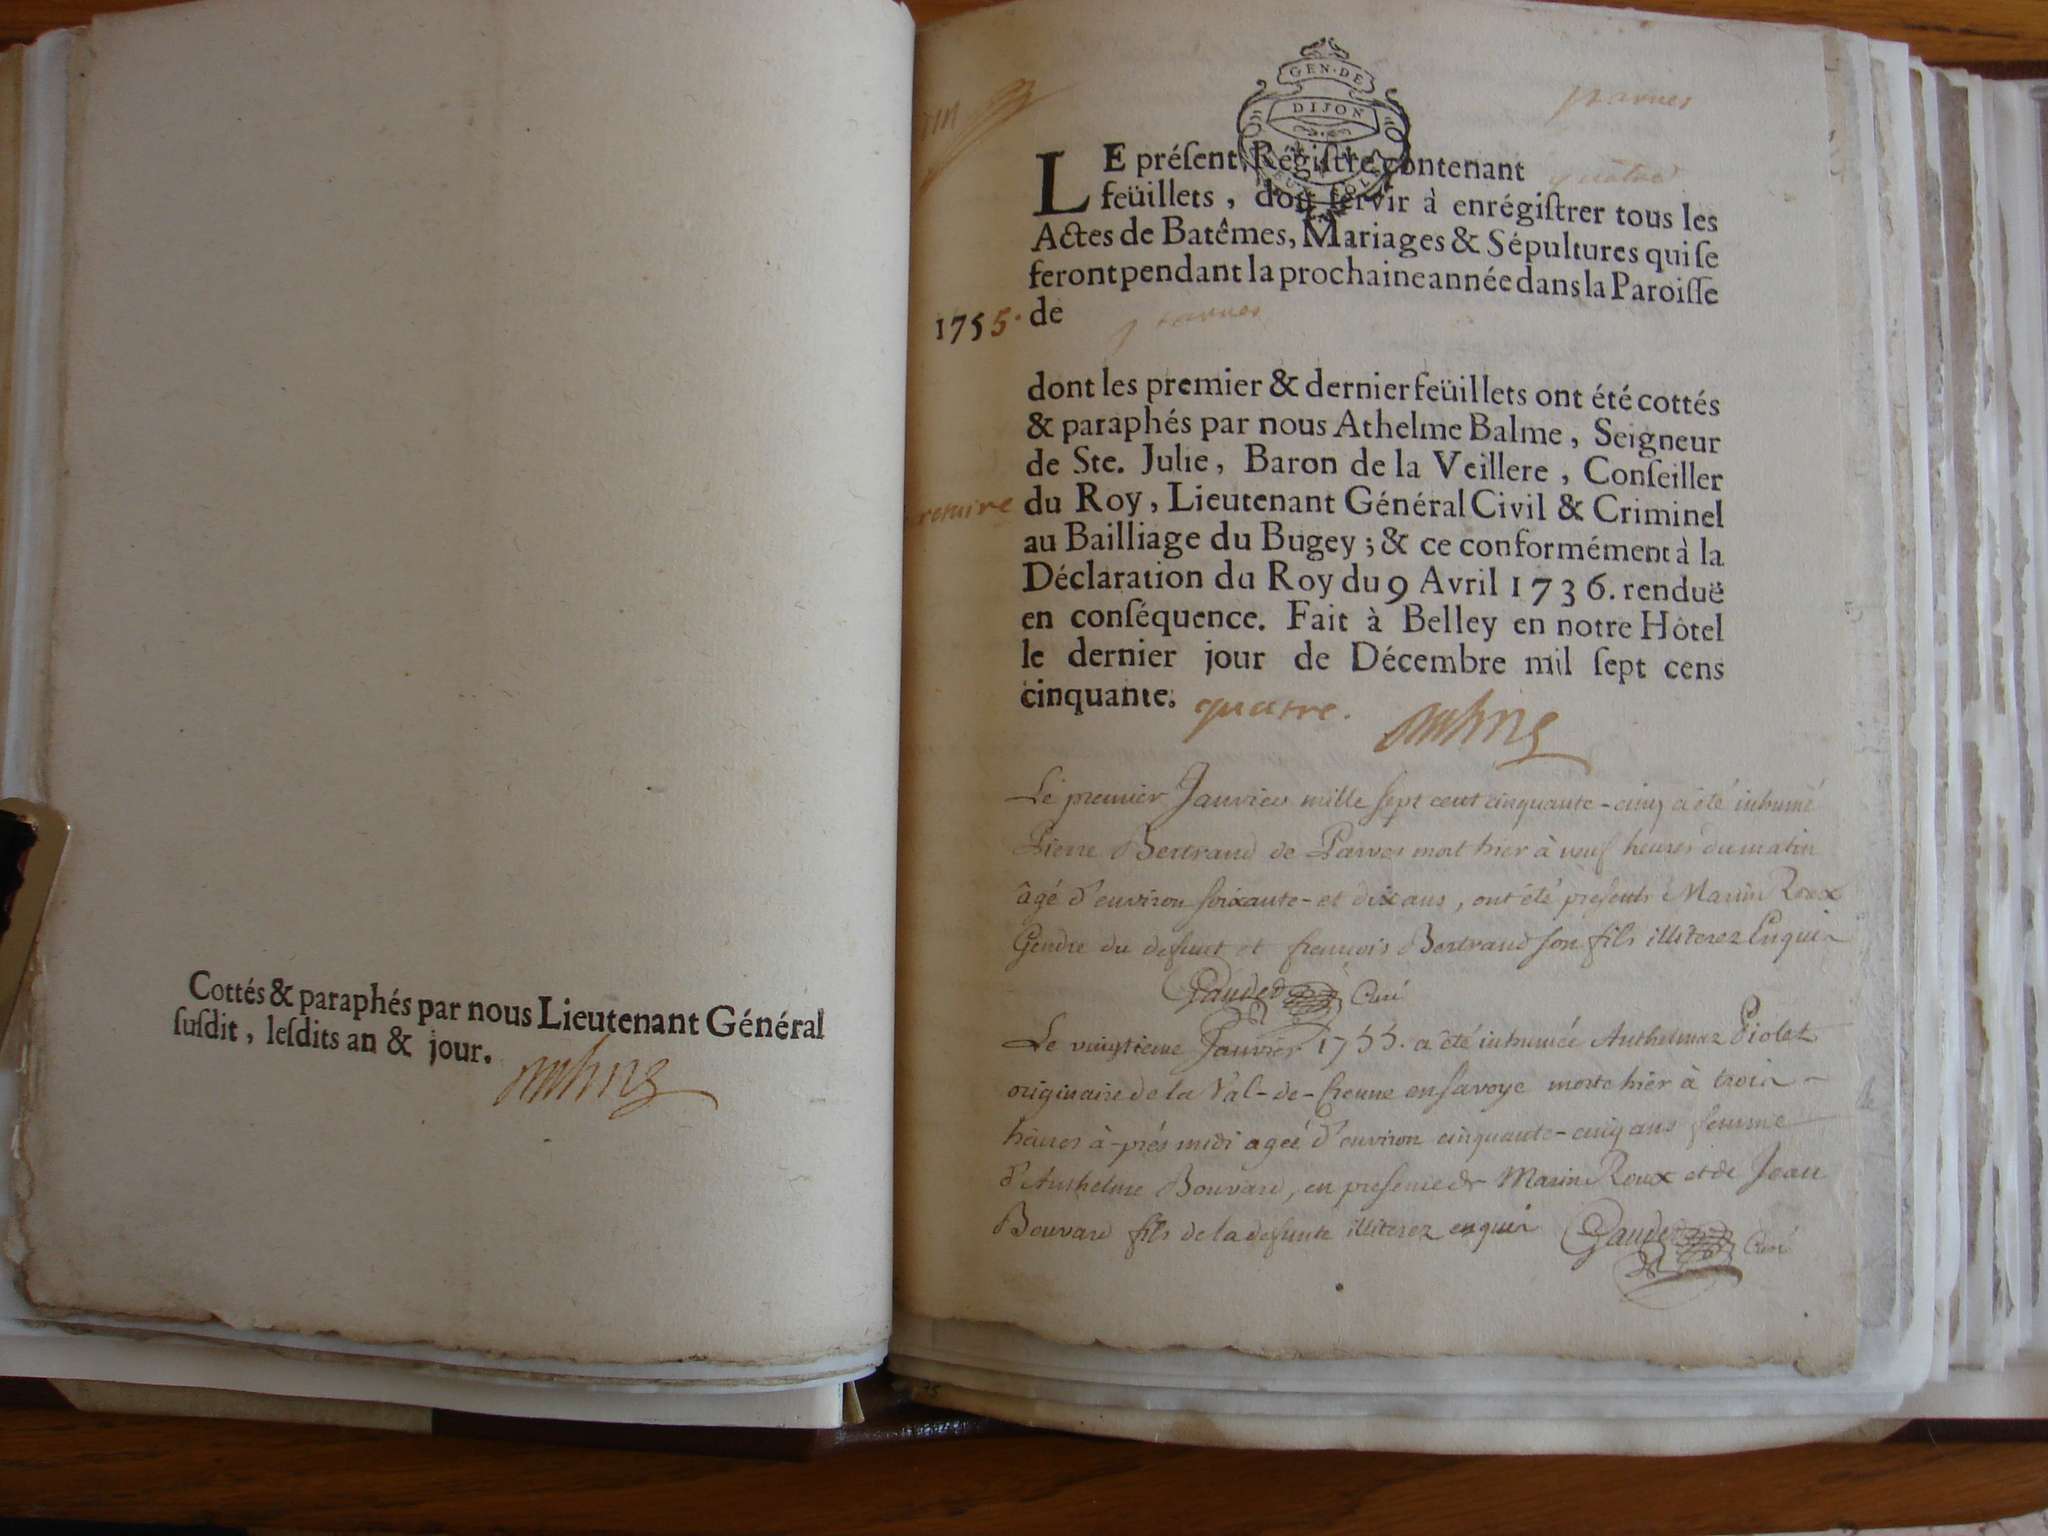 Cottés & paraphés par nous Lieutenant Général
ſuſdit, leſdits an & jour.
GEN. DE
DIJON
parves
LE préſent Régiſtre contenant quatre
feüillets, doit ſervir à enrégiſtrer tous les
Actes de Batêmes, Mariages & Sépultures qui ſe
feront pendant la prochaine année dans la Paroiſſe
1755. de parves
dont les premier & dernier feüillets ont été cottés
& paraphés par nous Athelme Balme, Seigneur
de Ste. Julie, Baron de la Veillere, Conſeiller
du Roy, Lieutenant Général Civil & Criminel
au Bailliage du Bugey; & ce conformément à la
Déclaration du Roy du 9 Avril 1736. renduë
en conſéquence. Fait à Belley en notre Hôtel
le dernier jour de Décembre mil ſept cens
cinquante. quatre.
Le premier Janvier mille sept cent cinquante-cinq a été inhumé
Pierre Bertrand de Parves mort hier à neuf heures du matin
âgé d'environ soixante-et dix ans, ont été presents Marin Roux
Gendre du defunt et francois Bertrand son fils illiterez Enquis
Gaudet Curé
Le vingtieme Janvier 1755. a été inhumée Anthelmaz Piolet
originaire de la Val-de-Crenne en savoye morte hier à trois
heures à-prés midi agée d'environ cinquante-cinq ans femme
d'Anthelme Bouvard, en presence de Marin Roux et de Jean
Bouvard fils de la defunte illiterez enquis Gaudet Curé